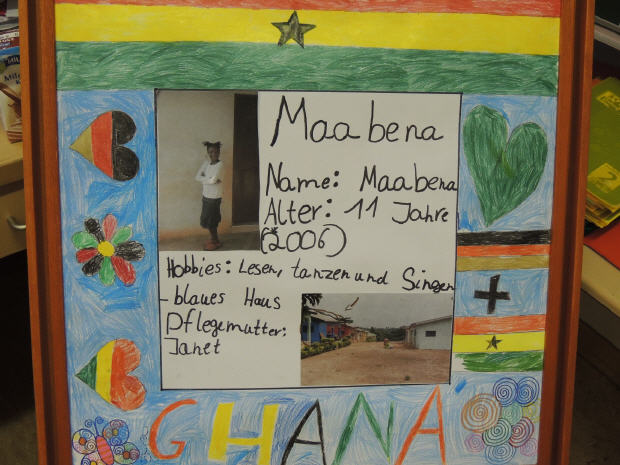 Maabena
Name: Maabena
Alter: 11 Jahre
(2006)
Hobbies: Lesen, tanzen und Singen
- blaues Haus
Pflegemutter:
Janet
GHANA